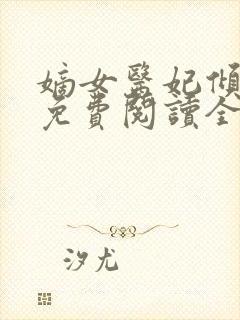 嫡女醫妃傾
免費閱讀全
汐尤